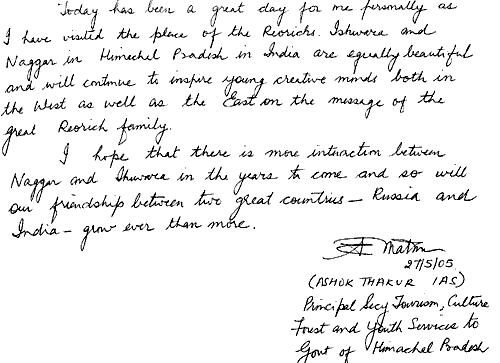 Today has been a great day for me personally as
I have visited the place of the Reorichs. Ishwara and
Naggar in Himachel Pradesh in India are equally beautiful
and will continue to inspire young creative minds both in
the West as well as the East on the message of the
great Reorich family.
I hope that there is more interaction between
Naggar and Ihwara in the years to come and so will
our friendship between two great countries — Russia and
India — grow ever than more.
27/5/05
(ASHOK THAKUR IAS)
Principal Secy Tourism, Culture
Forest and Youth Services to
Govt of Himachel Pradesh